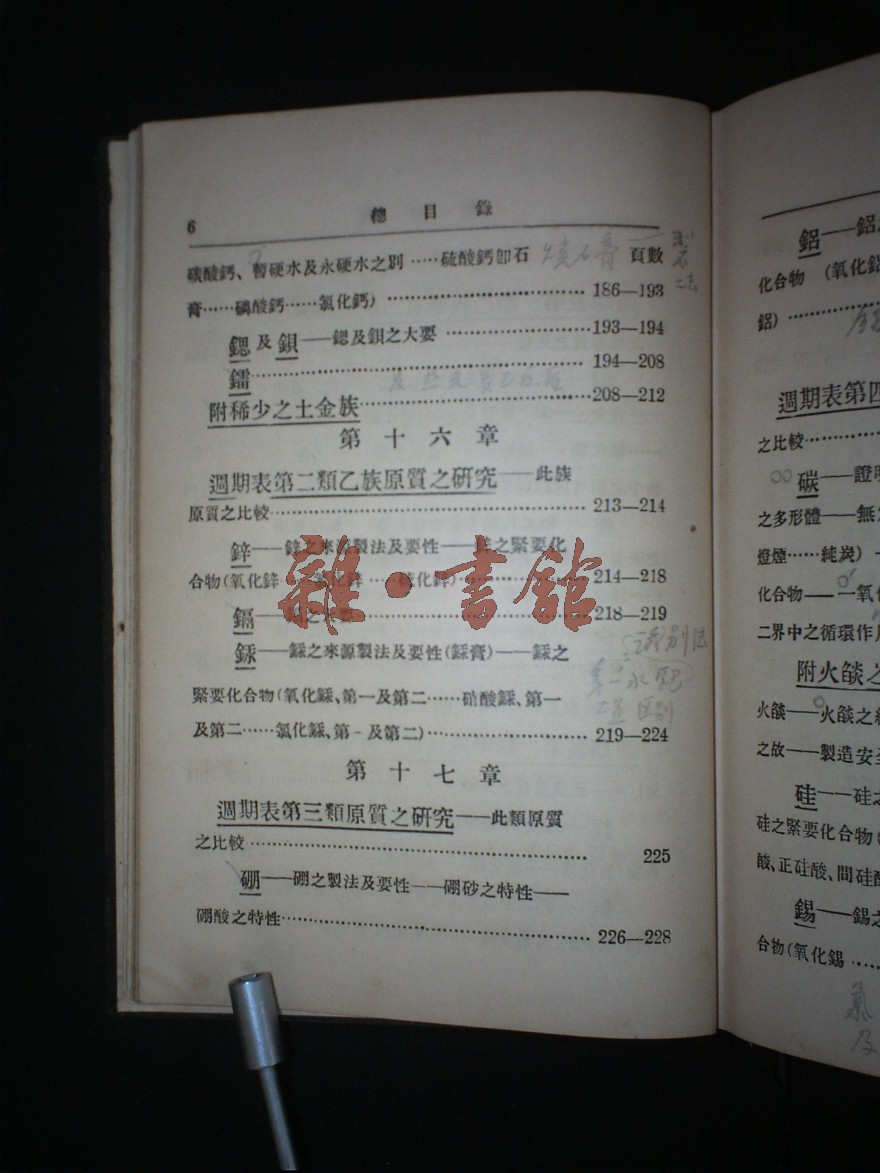 6
總目錄
碳酸鈣、暫硬水及永硬水之別……硫酸鈣卽石 燒石膏 頁數
膏……磷酸鈣……氯化鈣)……186—193
鍶及鋇——鍶及鋇之大要……193—194
鐳……194—208
附稀少之土金族……208—212
第十六章
週期表第二類乙族原質之硏究——此族
原質之比較……213—214
鋅——鋅之來源製法及要性——鋅之緊要化
合物(氧化鋅……氯化鋅……硫化鋅)……214—218
鎘……218—219
銾——銾之來源製法及要性(銾膏)——銾之
緊要化合物(氧化銾、第一及第二……硝酸銾、第一
及第二……氯化銾、第一及第二)……219—224
第十七章
週期表第三類原質之硏究——此類原質
之比較……225
硼——硼之製法及要性——硼砂之特性——
硼酸之特性……226—228
雜·書館
鋁——鋁
化合物 (氧化鋁
鋁)……
週期表第四
之比較……
碳——證
之多形體——無
燈煙……純炭)
化合物——一氧
二界中之循環作
附火燄之
火燄——火燄之
之故——製造安
硅——硅
硅之緊要化合物
酸、正硅酸、間硅
錫——錫
合物(氧化錫……
氯
及